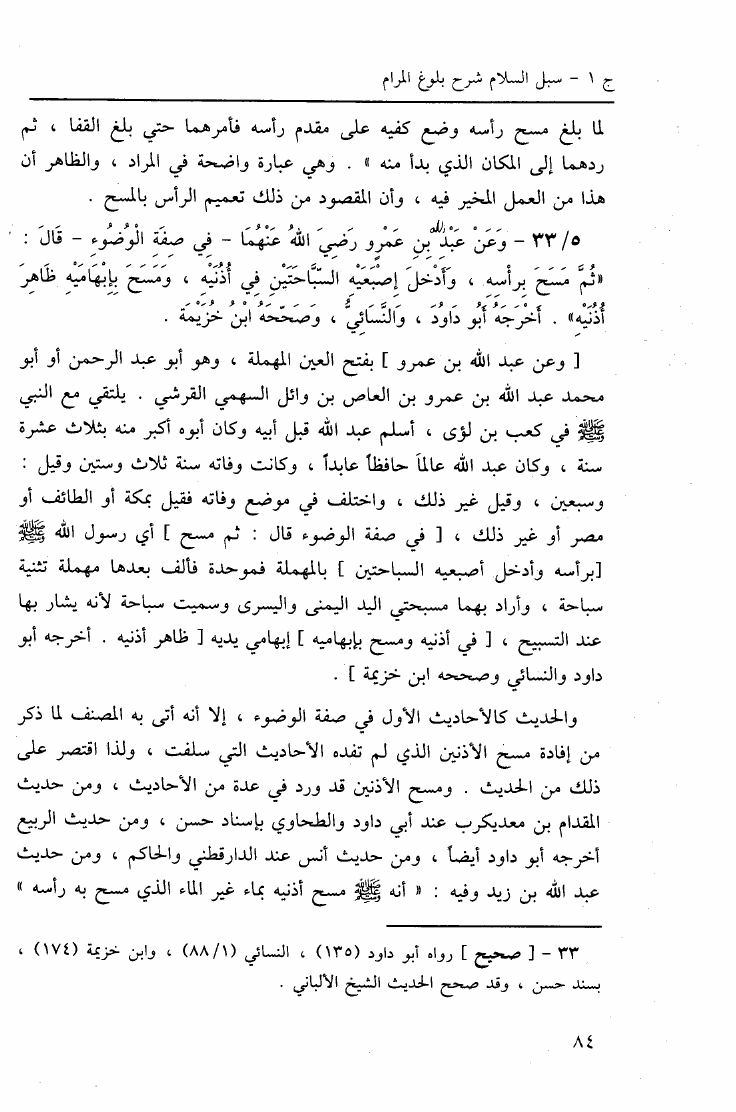 ج ١ - سبل السلام شرح بلوغ المرام
لما بلغ مسح رأسه وضع كفيه على مقدم رأسه فأمرهما حتي بلغ القفا ، ثم
ردهما إلى المكان الذي بدأ منه » . وهي عبارة واضحة في المراد ، والظاهر أن
هذا من العمل المخير فيه ، وأن المقصود من ذلك تعميم الرأس بالمسح .
٣٣/٥ - وَعَنْ عَبْدِ اللهِ بنِ عَمْرٍو رَضِيَ اللهُ عَنْهُمَا - فِي صِفَةِ الْوُضُوءِ - قَالَ :
«ثُمَّ مَسَحَ بِرأسِهِ ، وَأَدْخلَ إصْبَعَيْهِ السبَّاحَتَيْنِ فِي أُذُنَيْهِ ، وَمَسَحَ بِإبْهَامَيْهِ ظَاهِرَ
أُذُنَيْهِ» . أَخْرَجَهُ أبُو دَاوُدَ ، وَالنَّسَائيُّ ، وَصَحّحَهُ ابْنُ خُزَيْمَةَ .
[ وعن عبد الله بن عمرو ] بفتح العين المهملة ، وهو أبو عبد الرحمن أو أبو
محمد عبد الله بن عمرو بن العاص بن وائل السهمي القرشي . يلتقي مع النبي
ﷺ في كعب بن لؤى ، أسلم عبد الله قبل أبيه وكان أبوه أكبر منه بثلاث عشرة
سنة ، وكان عبد الله عالماً حافظاً عابداً ، وكانت وفاته سنة ثلاث وستين وقيل :
وسبعين ، وقيل غير ذلك ، واختلف في موضع وفاته فقيل بمكة أو الطائف أو
مصر أو غير ذلك ، [ في صفة الوضوء قال : ثم مسح ] أي رسول الله ﷺ
[برأسه وأدخل أصبعيه السباحتين ] بالمهملة فموحدة فألف بعدها مهملة تثنية
سباحة ، وأراد بهما مسبحتي اليد اليمنى واليسرى وسميت سباحة لأنه يشار بها
عند التسبيح ، [ في أذنيه ومسح بإبهاميه ] إبهامي يديه [ ظاهر أذنيه . أخرجه أبو
داود والنسائي وصححه ابن خزيمة ] .
والحديث كالأحاديث الأول في صفة الوضوء ، إلا أنه أتى به المصنف لما ذكر
من إفادة مسح الأذنين الذي لم تفده الأحاديث التي سلفت ، ولذا اقتصر على
ذلك من الحديث . ومسح الأذنين قد ورد في عدة من الأحاديث ، ومن حديث
المقدام بن معديكرب عند أبي داود والطحاوي بإسناد حسن ، ومن حديث الربيع
أخرجه أبو داود أيضاً ، ومن حديث أنس عند الدارقطني والحاكم ، ومن حديث
عبد الله بن زيد وفيه : « أنه ﷺ مسح أذنيه بماء غير الماء الذي مسح به رأسه »
٣٣ - [ صحيح ] رواه أبو داود (١٣٥) ، النسائي (٨٨/١) ، وابن خزيمة (١٧٤) ،
بسند حسن ، وقد صحح الحديث الشيخ الألباني .
٨٤